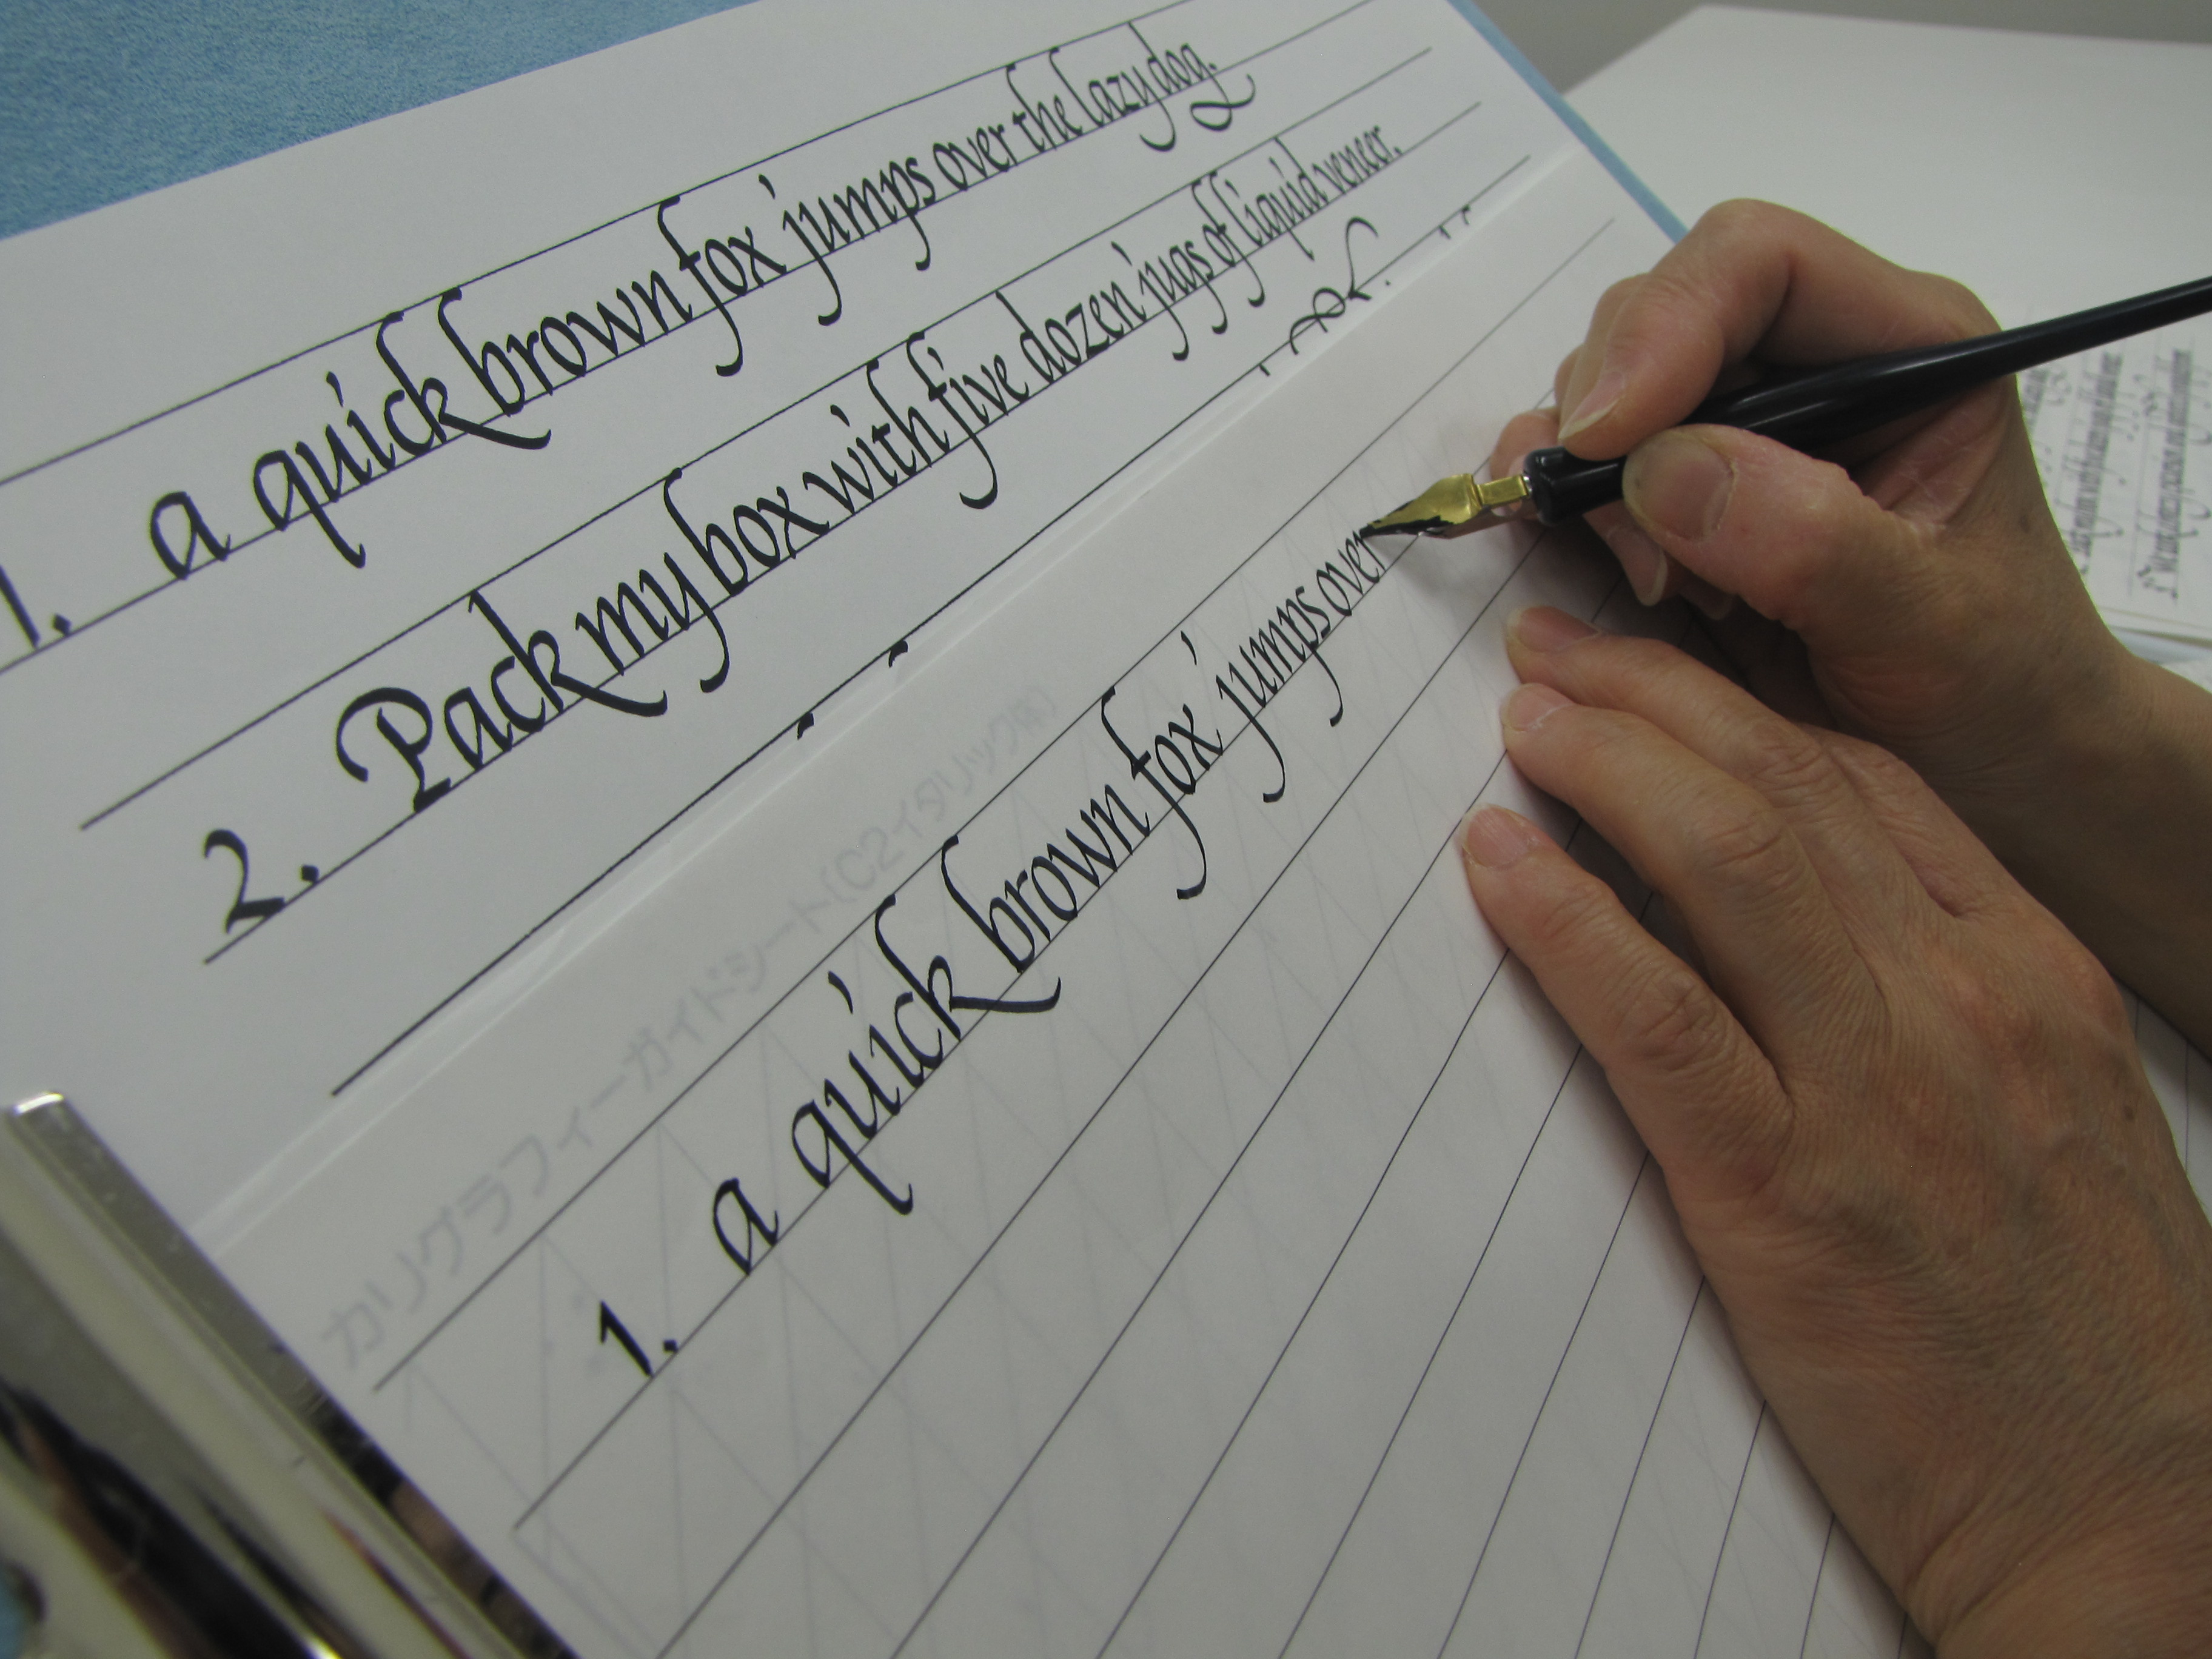 1. a quick brown fox jumps over the lazy dog.
2. Pack my box with five dozen jugs of liquid veneer.
カリグラフィーガイドシート(C2イタリック体)
1. a quick brown fox jumps over